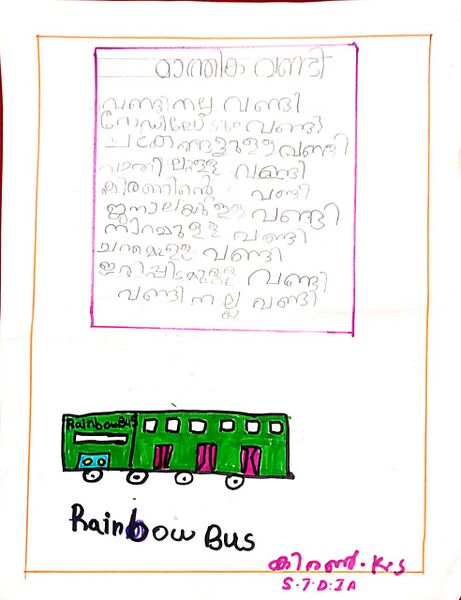 മാന്ത്രിക വണ്ടി
വണ്ടി നല്ല വണ്ടി
റോഡിലോടും വണ്ടി
ചക്രങ്ങളുള്ള വണ്ടി
വാതിലുള്ള വണ്ടി
കിരണിന്റെ വണ്ടി
ജനാലയുള്ള വണ്ടി
നിറമുള്ള വണ്ടി
ചന്തമുള്ള വണ്ടി
ഇരിപ്പിടമുള്ള വണ്ടി
വണ്ടി നല്ല വണ്ടി
RainbowBus
Rainbow Bus
കിരൺ.K.S
S.T.D:IA